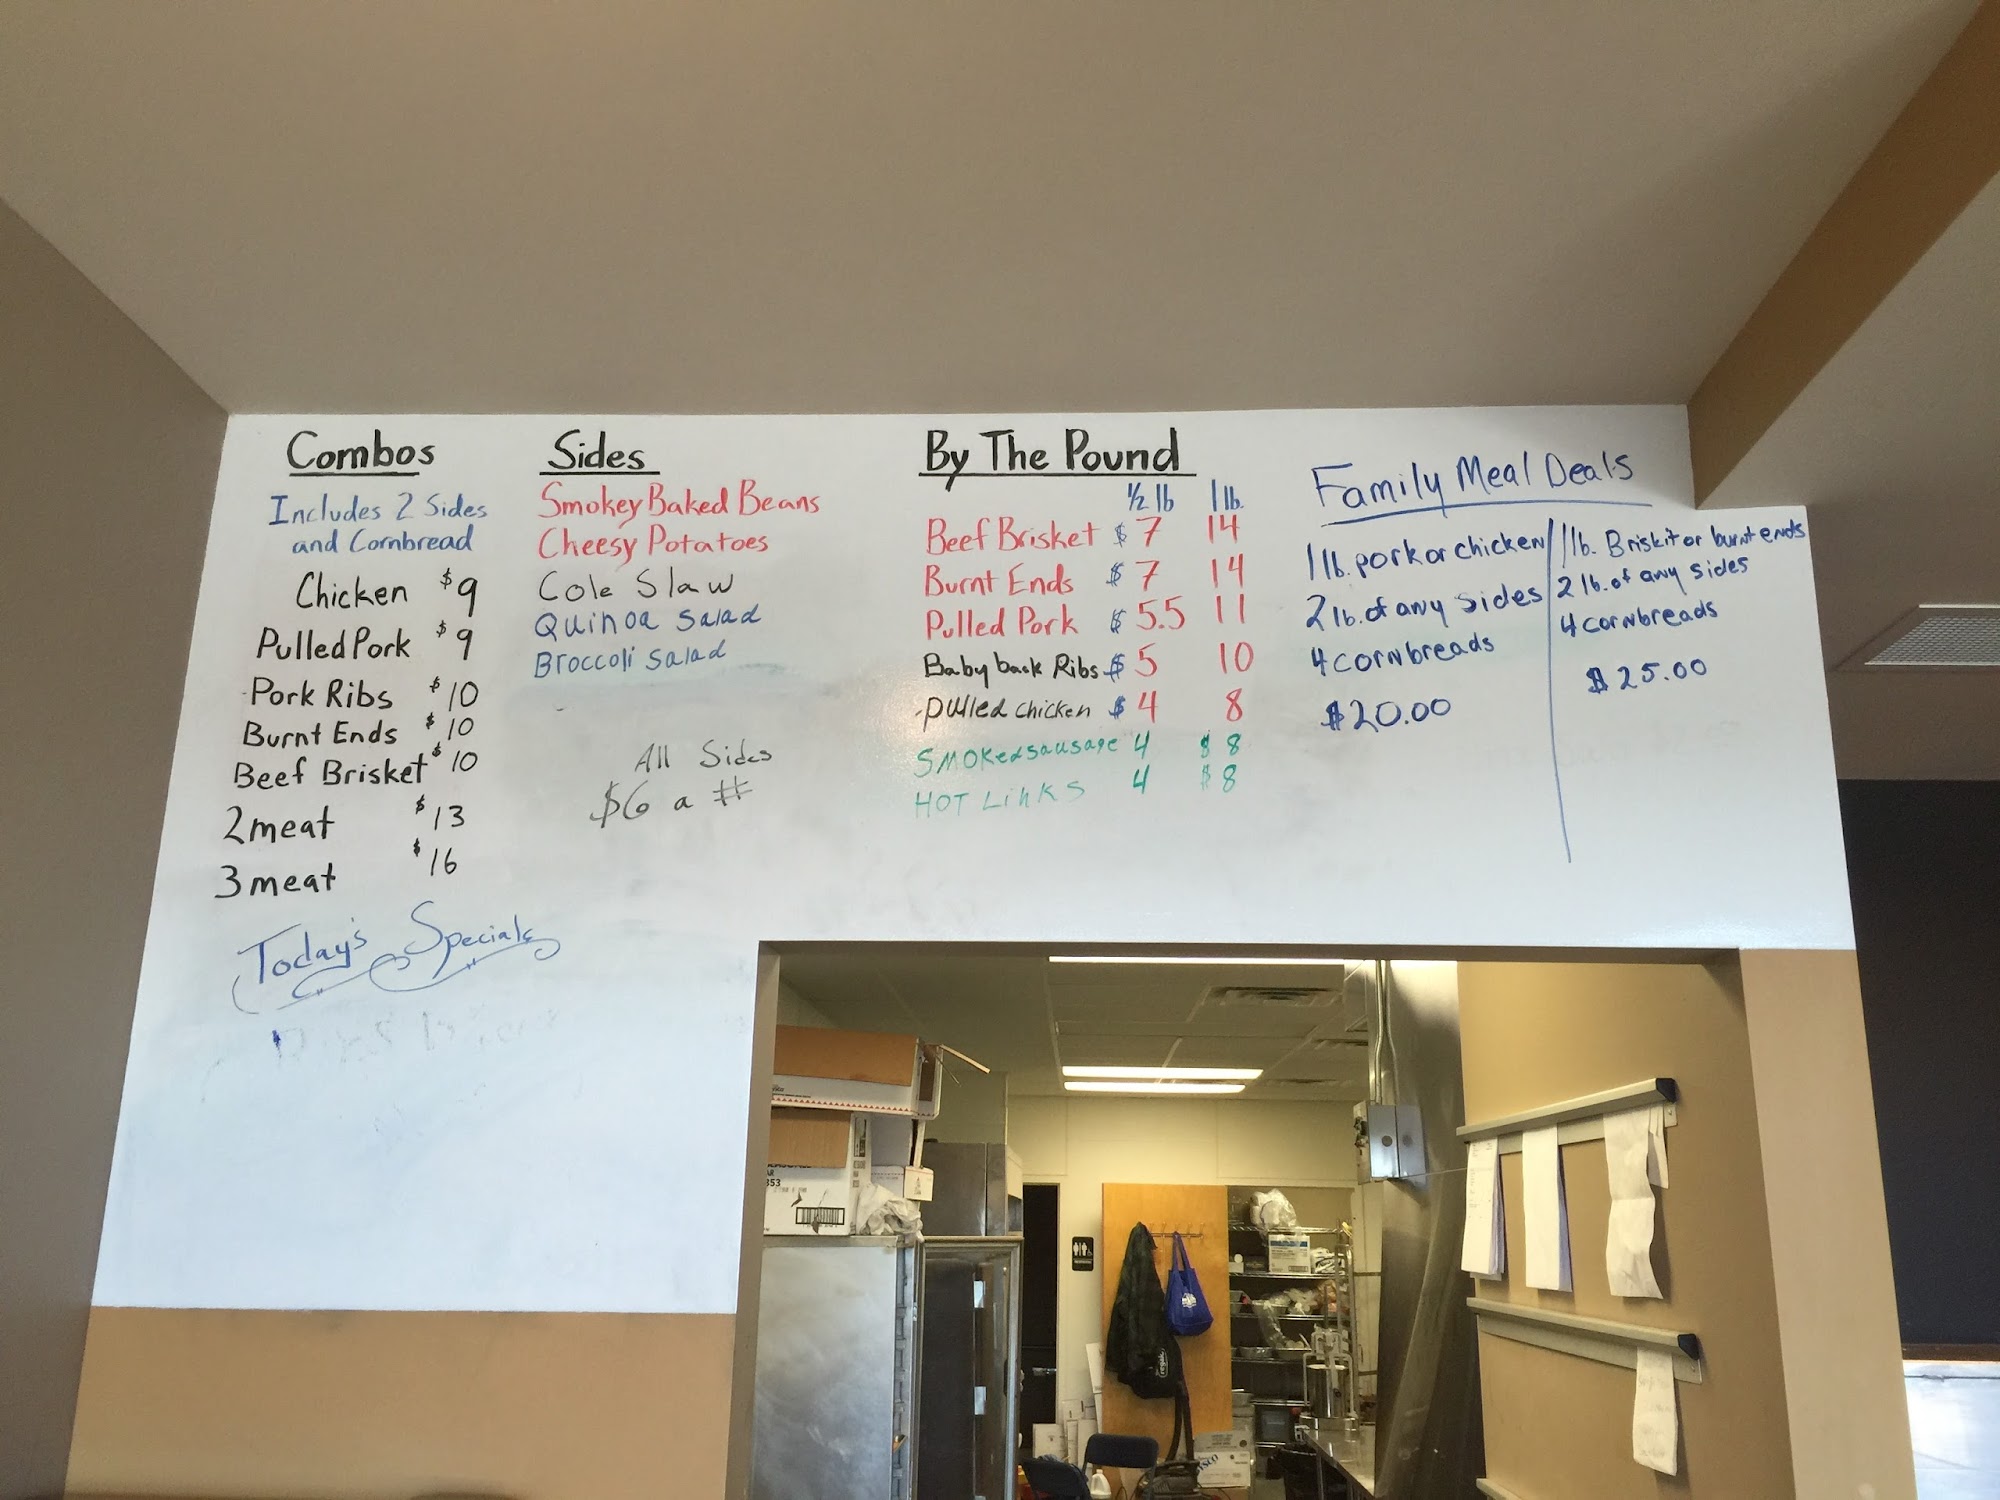 Combos
Includes 2 Sides
and Cornbread
Chicken $9
Pulled Pork $9
Pork Ribs $10
Burnt Ends $10
Beef Brisket $10
2 meat $13
3 meat $16
Today's Specials
Sides
Smokey Baked Beans
Cheesy Potatoes
Cole Slaw
Quinoa Salad
Broccoli Salad
All Sides
$6 a #
By The Pound
1/2 lb 1 lb.
Beef Brisket $7 14
Burnt Ends $7 14
Pulled Pork $5.5 11
Baby back Ribs $5 10
Pulled chicken $4 8
Smoked sausage 4 $8
HOT Links 4 $8
Family Meal Deals
1 lb. pork or chicken
2 lb. of any sides
4 cornbreads
$20.00
1 lb. Briskit or burnt ends
2 lb. of any sides
4 cornbreads
$25.00